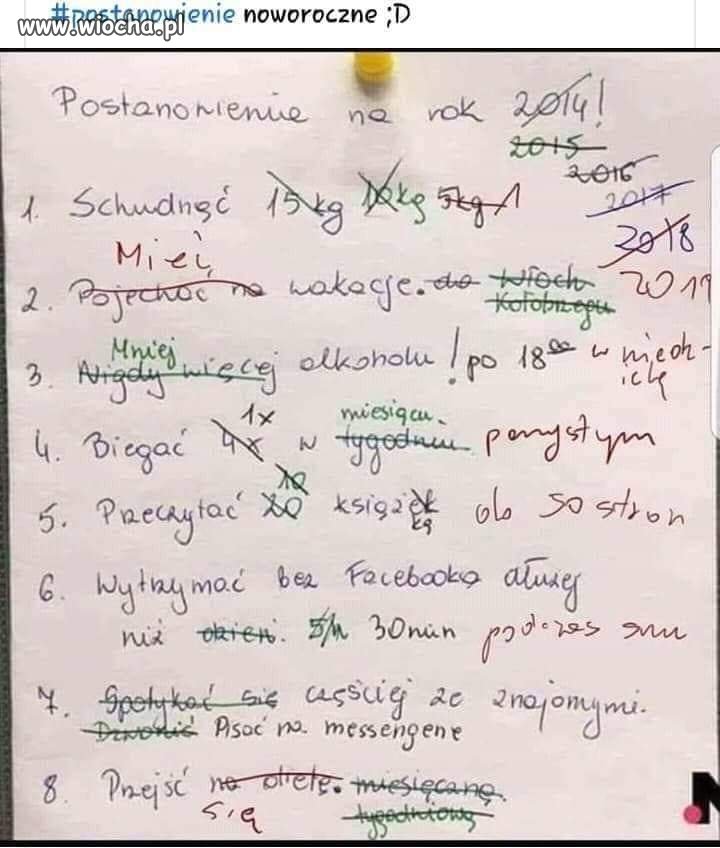 #postanowienie noworoczne ;D
www.wiocha.pl
Postanowienie na rok 2014!
2015
2016
2017
2018
2019
1. Schudnąć 15kg 10kg 5kg 1
Mieć
2. Pojechać na wakacje. do Włoch
Kołobrzegu
Mniej
3. Nigdy więcej alkoholu! po 18⁰⁰ w niedz-
ielę
1x miesiącu.
4. Biegać 4x w tygodniu parzystym
10
5. Przeczytać 20 książek do 50 stron
kę
6. Wytrzymać bez Facebooka dłużej
niż dzień. 5h 30min podczas snu
7. Spotykać się częściej ze znajomymi.
Dzwonić Pisać na messengerze
8. Przejść na dietę. miesięczną.
się tygodniową